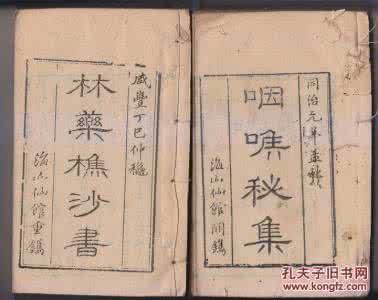 同治元年孟
咽喉秘集
海山仙館鐫
咸豐丁巳仲穐
林藥樵沙書
海山仙館重鐫
孔夫子旧书网
www.kongfz.com